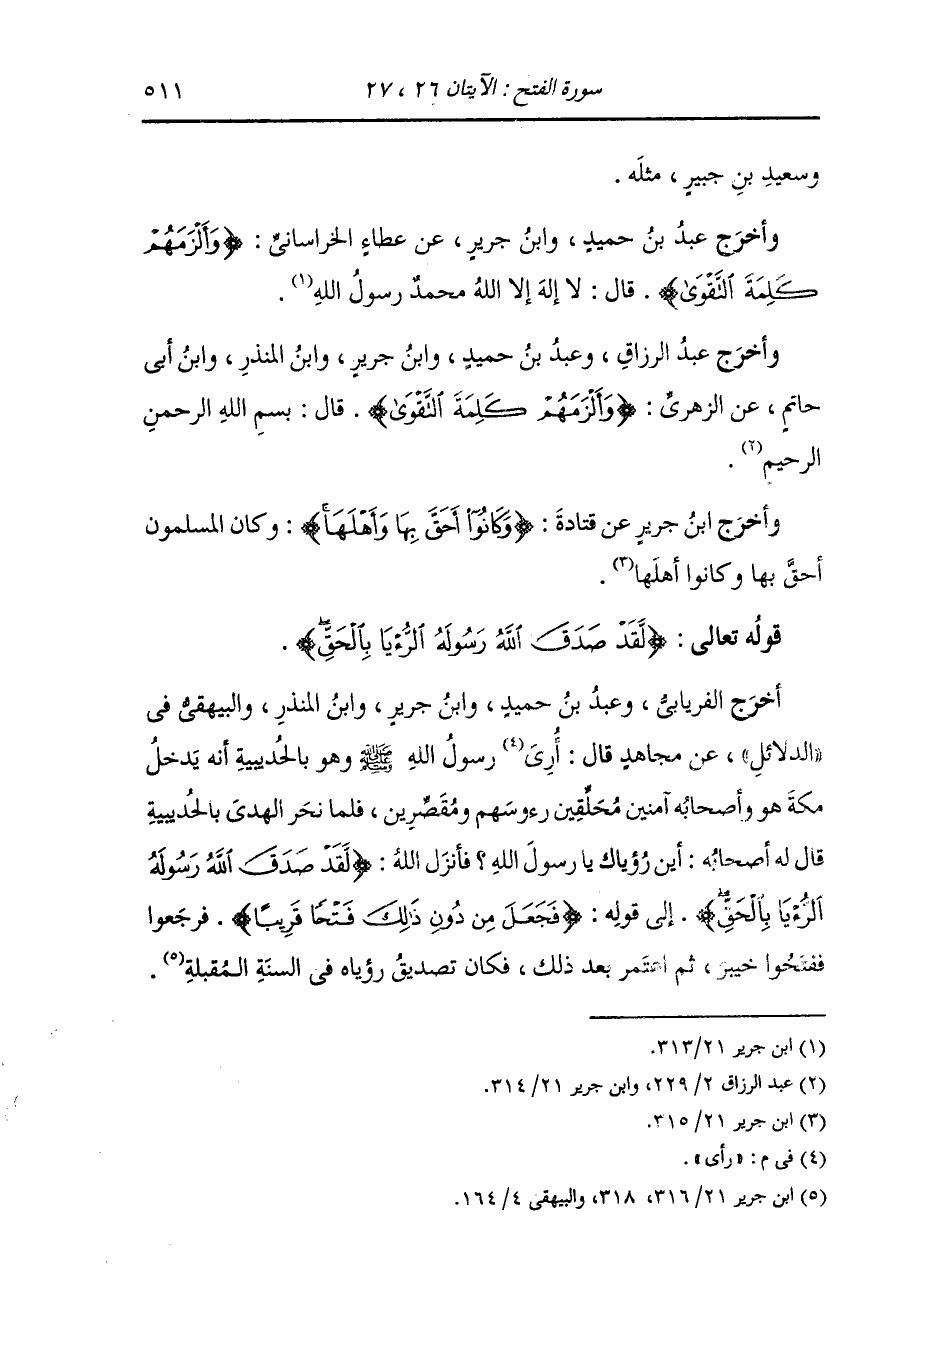 سورة الفتح : الآيتان ٢٦ ، ٢٧ ٥١١
وسعيدِ بنِ جبيرٍ ، مثلَه .
وأخرَج عبدُ بنُ حميدٍ ، وابنُ جريرٍ ، عن عطاءٍ الخراسانىِّ : ﴿وَأَلْزَمَهُمْ
كَلِمَةَ ٱلتَّقْوَىٰ﴾ . قال : لا إلهَ إلا اللهُ محمدٌ رسولُ اللهِ(١) .
وأخرَج عبدُ الرزاقِ ، وعبدُ بنُ حميدٍ ، وابنُ جريرٍ ، وابنُ المنذرِ ، وابنُ أبى
حاتمٍ ، عن الزهرىِّ : ﴿وَأَلْزَمَهُمْ كَلِمَةَ ٱلتَّقْوَىٰ﴾ . قال : بسمِ اللهِ الرحمنِ
الرحيمِ(٢) .
وأخرَج ابنُ جريرٍ عن قتادةَ : ﴿وَكَانُوٓا۟ أَحَقَّ بِهَا وَأَهْلَهَا ۚ﴾ : وكان المسلمون
أحقَّ بها وكانوا أهلَها(٣) .
قولُه تعالى : ﴿لَّقَدْ صَدَقَ ٱللَّهُ رَسُولَهُ ٱلرُّءْيَا بِٱلْحَقِّ ۖ﴾ .
أخرَج الفريابىُّ ، وعبدُ بنُ حميدٍ ، وابنُ جريرٍ ، وابنُ المنذرِ ، والبيهقىُّ فى
«الدلائلِ» ، عن مجاهدٍ قال : أُرِىَ(٤) رسولُ اللهِ ﷺ وهو بالحُديبيةِ أنه يَدخلُ
مكةَ هو وأصحابُه آمنين مُحَلِّقين رءوسَهم ومُقَصِّرِين ، فلما نحَر الهدىَ بالحُديبيةِ
قال له أصحابُه : أين رُؤياك يا رسولَ اللهِ ؟ فأنزَل اللهُ : ﴿لَّقَدْ صَدَقَ ٱللَّهُ رَسُولَهُ
ٱلرُّءْيَا بِٱلْحَقِّ ۖ﴾ . إلى قولِه : ﴿فَجَعَلَ مِن دُونِ ذَٰلِكَ فَتْحًا قَرِيبًا﴾ . فرجَعوا
ففتَحُوا خيبرَ ، ثم اعتَمر بعد ذلك ، فكان تصديقُ رؤياه فى السنَةِ المُقبلةِ(٥) .
(١) ابن جرير ٢١/ ٣١٣.
(٢) عبد الرزاق ٢/ ٢٢٩، وابن جرير ٢١/ ٣١٤.
(٣) ابن جرير ٢١/ ٣١٥.
(٤) فى م : «رأى» .
(٥) ابن جرير ٢١/ ٣١٦، ٣١٨، والبيهقى ٤/ ١٦٤.